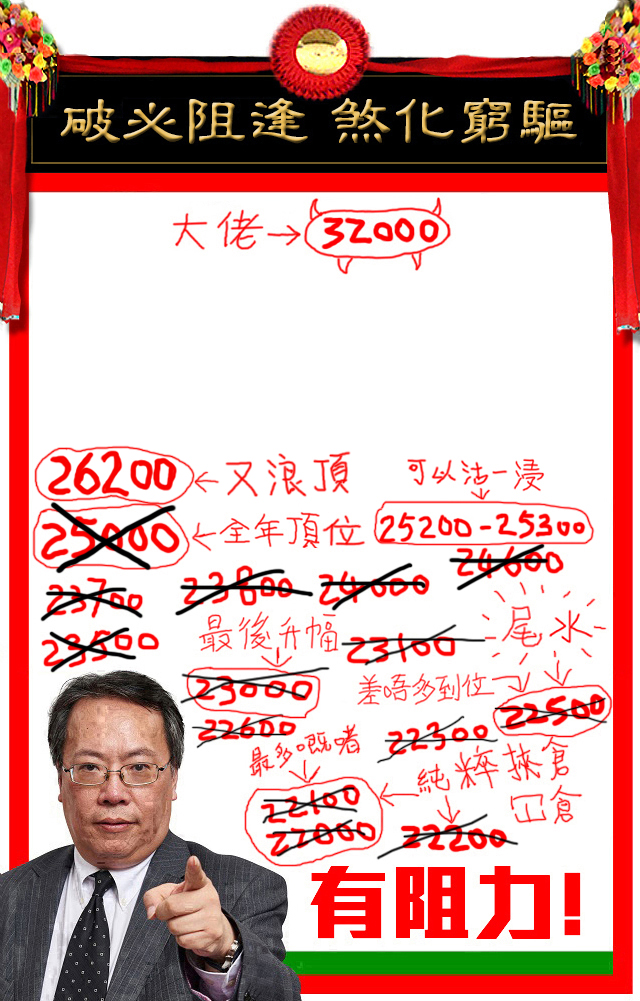 破必阻逢 煞化窮驅
大佬→32000
26200←又浪頂
可以沽一浸
25000←全年頂位
25200-25300
24600
23700 23800 24000
23500
最後升幅
23100
尾水
23000
差唔多到位
22500
22600
22300
最多嘅啫
純粹挾倉
冚倉
22100
22000
22200
有阻力!